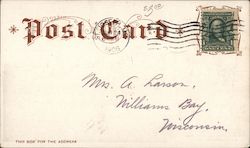 Post Card
Mrs. A. Larson,
Williams Bay,
Wisconsin.
THIS SIDE FOR THE ADDRESS